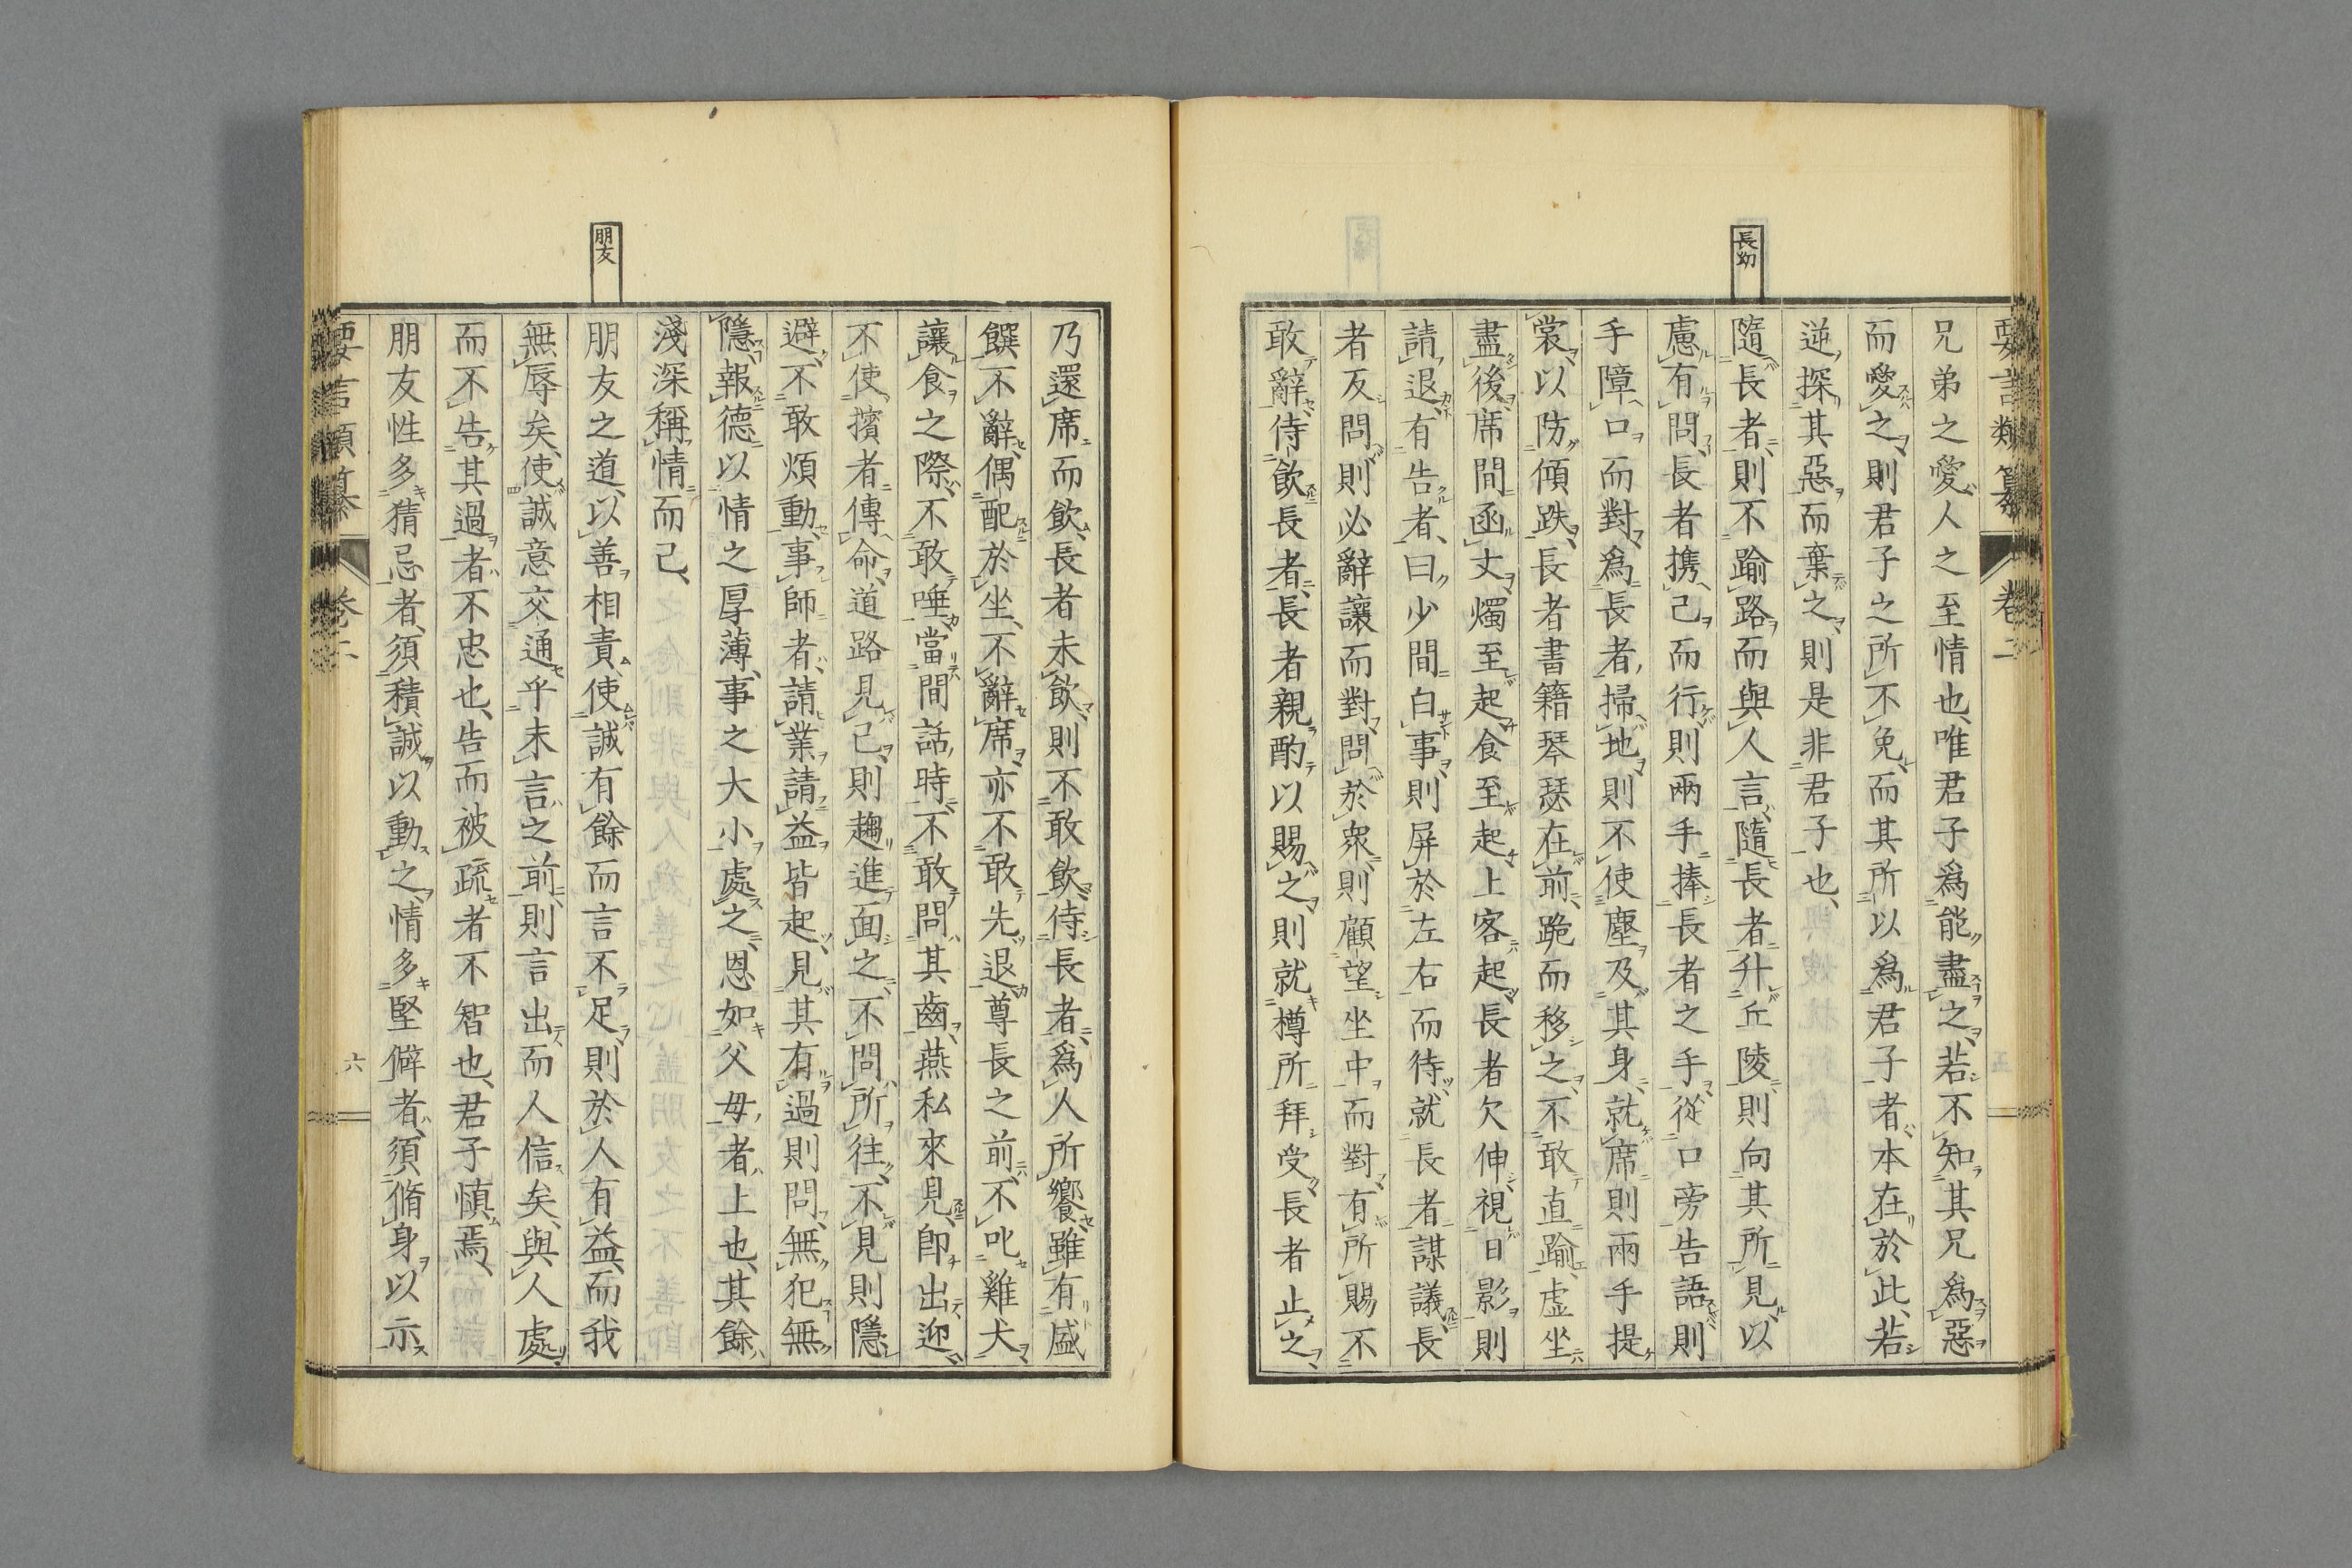 要言類纂 卷二
長幼
兄弟之愛人之至情也、唯君子爲能盡之、若不知其兄爲惡
而愛之、則君子之所不免、而其所以爲君子者、本在於此、若
逆探其惡而棄之、則是非君子也、
隨長者、則不踰路而與人言、隨長者升丘陵、則向其所見以
慮有問、長者携己而行、則兩手捧長者之手、從口旁告語、則
手障口而對、爲長者掃地、則不使塵及其身、就席則兩手提
裳、以防傾跌、長者書籍琴瑟在前、跪而移之、不敢直踰、虛坐
盡後、席間函丈、燭至起、食至起、上客起、長者欠伸、視日影則
請退、有告者、曰少間白事、則屏於左右而待、就長者謀議、長
者反問、則必辭讓而對、問於衆、則顧望坐中而對、有所賜、不
敢辭、侍飲長者、長者親酌以賜之、則就樽所拜受、長者止之、
乃還席而飲、長者未飲、則不敢飲、侍長者、爲人所饗、雖有盛
饌不辭、偶配於坐、不辭席、亦不敢先退、尊長之前、不叱雞犬、
讓食之際、不敢唾、當間話時、不敢問其齒、燕私來見、卽出迎、
不使擯者傳命、道路見己、則趨進面之、不問所往、不見則隱
避、不敢煩動、事師者、請業請益皆起、見其有過則問、無犯無
隱、報德以情之厚薄、事之大小處之、恩如父母者上也、其餘
淺深稱情而已、
朋友
朋友之道、以善相責、使誠有餘而言不足、則於人有益、而我
無辱矣、使誠意交通乎未言之前、則言出而人信矣、與人處
而不告其過者、不忠也、告而被疏者不智也、君子愼焉、
朋友性多猜忌者、須積誠以動之、情多堅僻者、須脩身以示
要言類纂 卷二 六